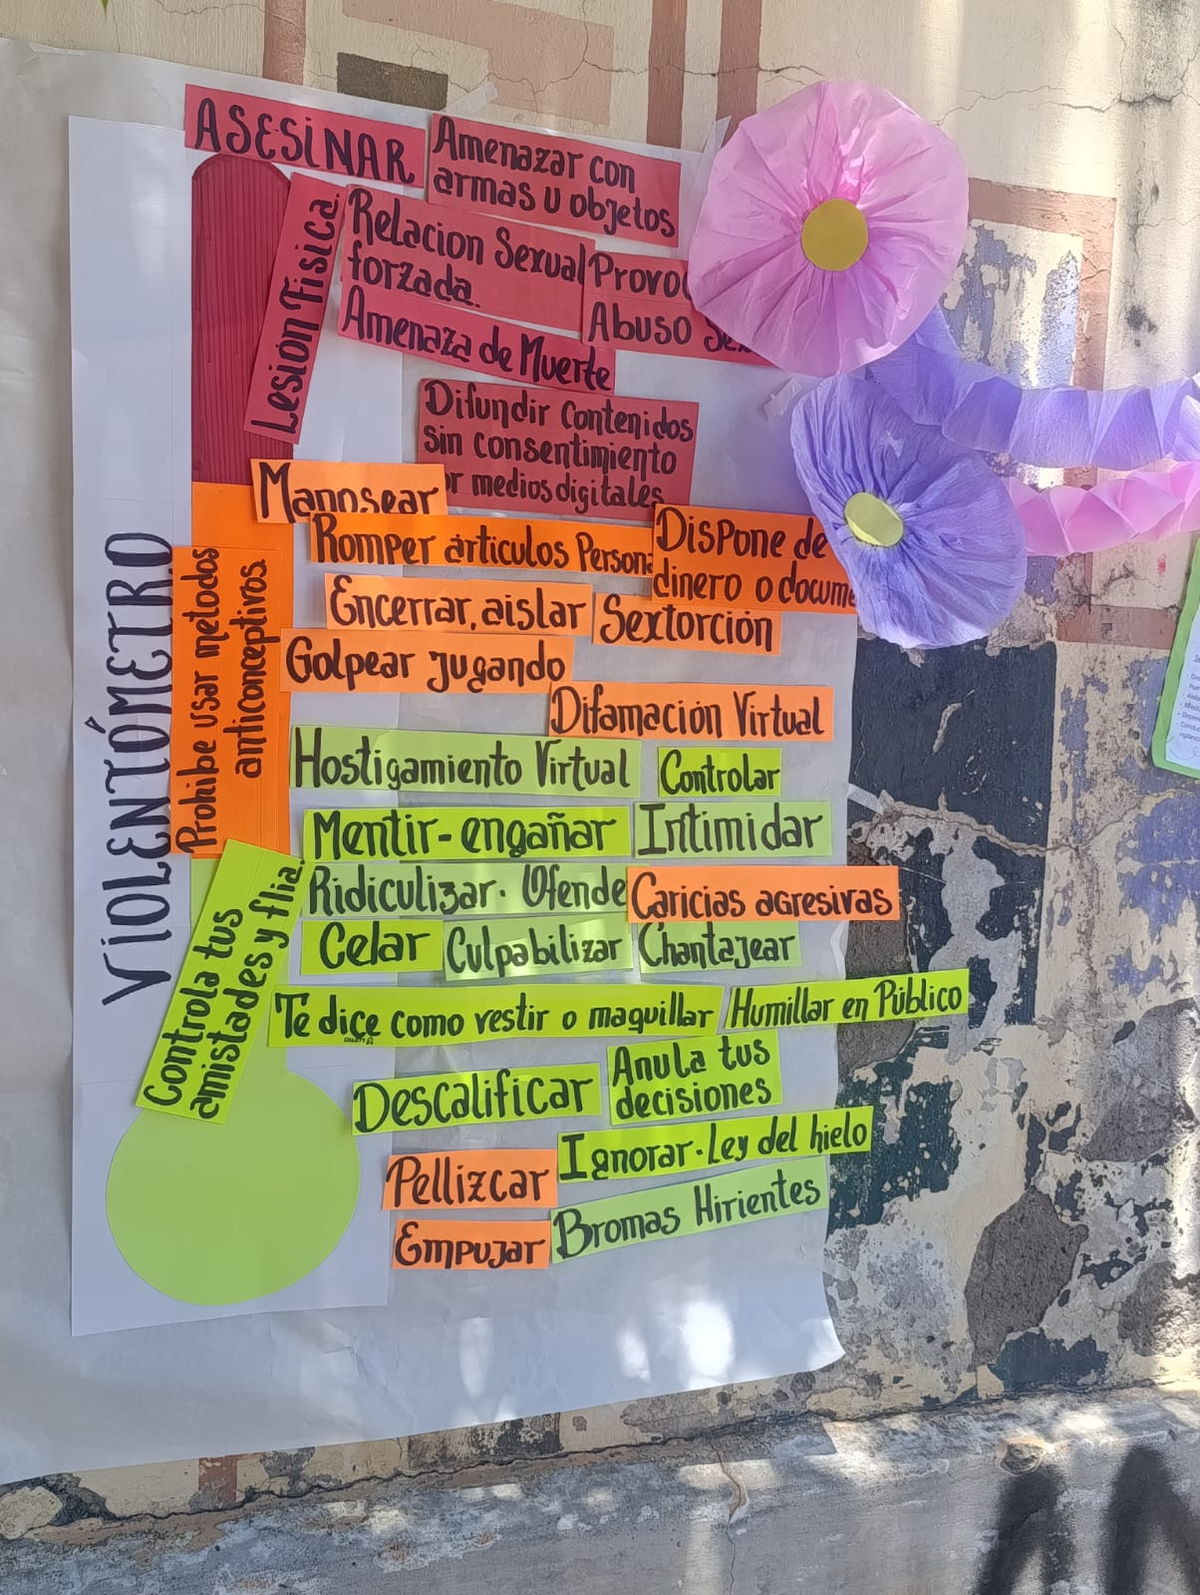 ASESINAR
Amenazar con
armas u objetos
Lesion Fisica.
Relacion Sexual
forzada.
Abuso
Amenaza de Muerte
Difundir Contenidos
sin consentimiento
medios digitales
Manosear
Romper articulos
Dispone de
dinero o
Encerrar, aislar
Sextorción
Golpear jugando
Difamación Virtual
VIOLENTÓMETRO
Prohibe usar metodos
anticonceptivos
Hostigamiento Virtual
Controlar
Mentir-engañar
Intimidar
Ridiculizar. Ofende
Caricias agresivas
Celar
Culpabilizar
Chantajear
Controla tus
amistades y flia.
Te dice como vestir o maquillar
Humillar en Público
Descalificar
Anula tus
decisiones
Ignorar. Ley del hielo
Pellizcar
Bromas Hirientes
Empujar